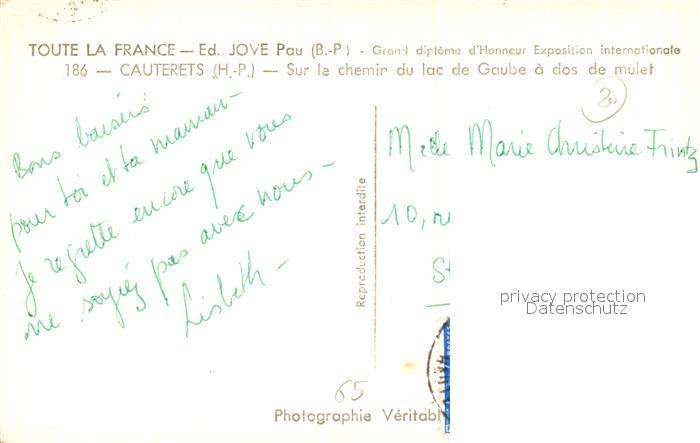 TOUTE LA FRANCE — Ed. JOVE Pau (B.-P.) - Grand diplôme d'Honneur Exposition internationale
186 — CAUTERETS (H.-P.) — Sur le chemin du lac de Gaube à dos de mulet
20
Bons baisers
pour toi et ta maman -
Je regrette encore que vous
ne soyiez pas avec nous -
Lisbeth -
Reproduction interdite
Melle Marie Christine Frintz
10, ru
St
privacy protection
Datenschutz
65
Photographie Véritabl